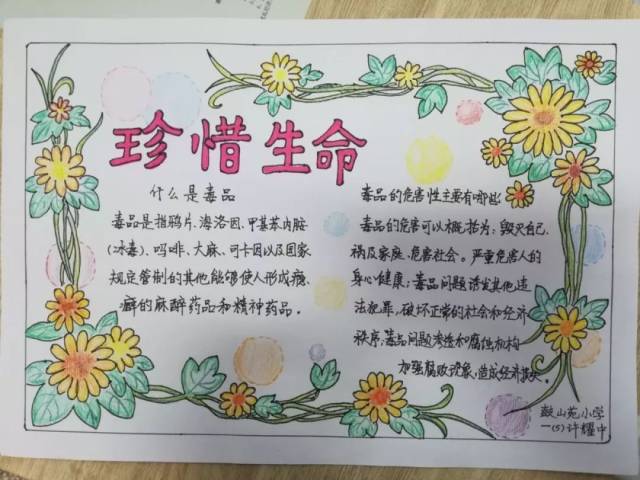 珍惜生命
什么是毒品
毒品是指鸦片、海洛因、甲基苯丙胺
(冰毒)、吗啡、大麻、可卡因以及国家
规定管制的其他能够使人形成瘾
癖的麻醉药品和精神药品。
毒品的危害性主要有哪些
毒品的危害可以概括为:毁灭自己、
祸及家庭、危害社会。严重危害人的
身心健康;毒品问题诱发其他违
法犯罪,破坏正常的社会和经济
秩序;毒品问题渗透和腐蚀和构
加强腐败现象,造成经济损失。
鼓山苑小学
一(5)许耀中